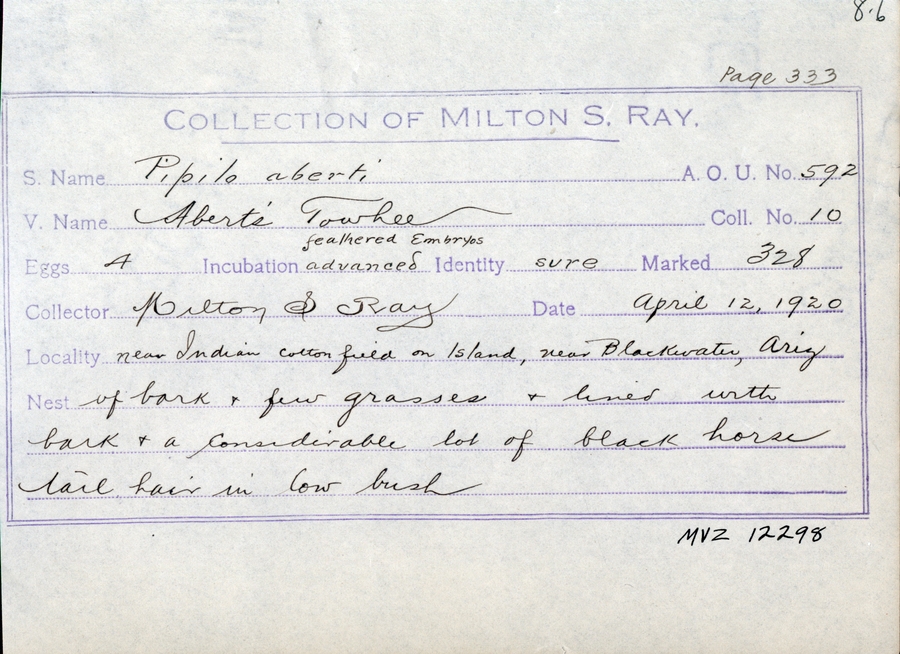 8.6
Page 333
COLLECTION OF MILTON S. RAY.
S. Name Pipilo aberti A. O. U. No. 592
V. Name Abert's Towhee Coll. No. 10
feathered Embryos
Eggs 4 Incubation advanced Identity sure Marked 328
Collector Milton S Ray Date April 12, 1920
Locality near Indian cotton field on Island, near Blackwater, Ariz
Nest of bark + few grasses + lined with
bark + a considerable lot of black horse
tail hair in low bush
MVZ 12298